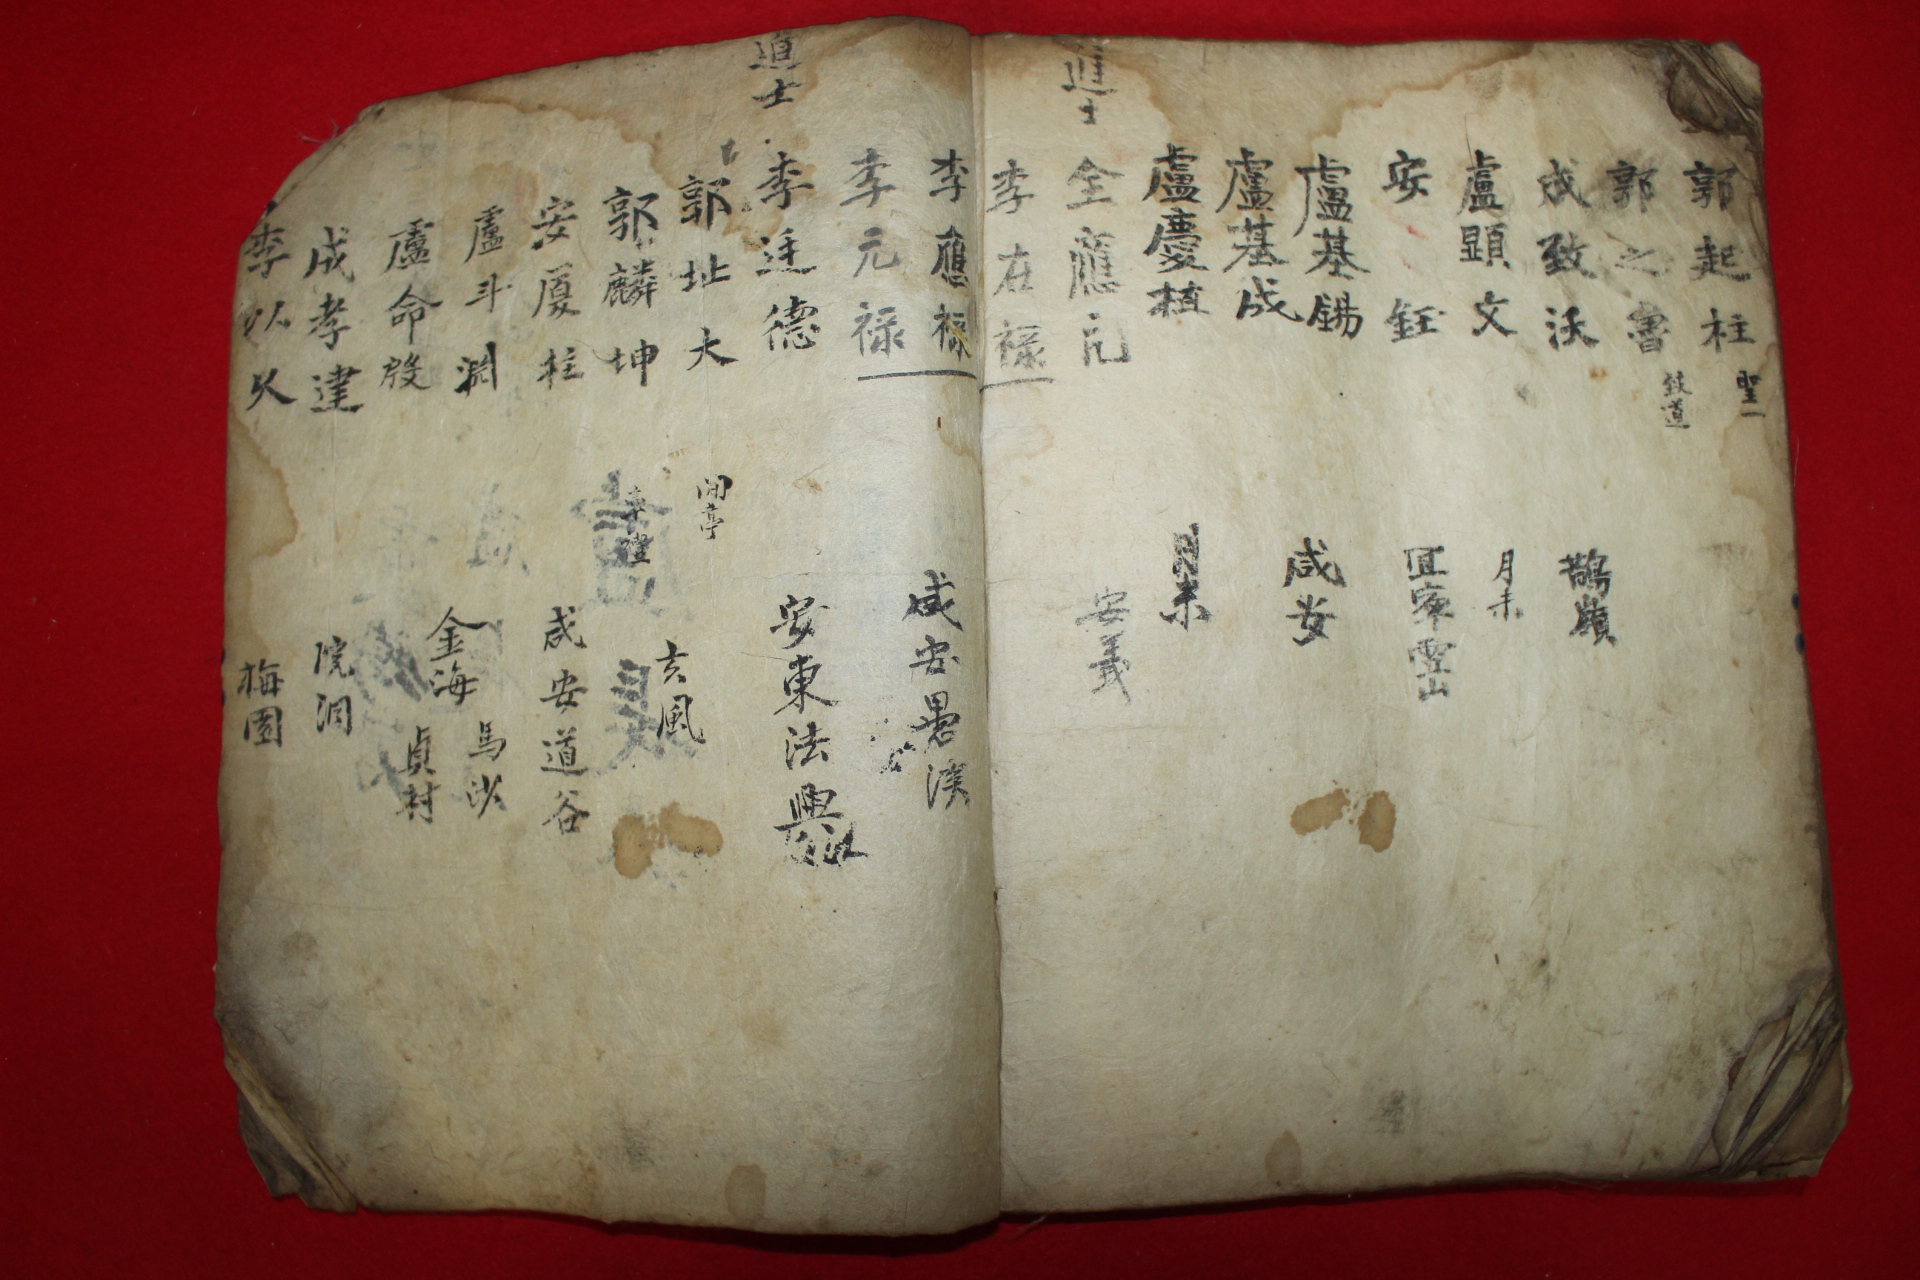 郭起柱 聖一
郭之魯 致道
成致沃 鵲嶺
盧顯文 月末
安鈺 宜寧雪山
盧基錫 咸安
盧基成
盧慶植 月末
進士 全應元 安義
李在祿
李應祿 咸安
李元祿
進士 李廷德 安東法興
郭址大 玄風
郭麟坤
安厦柱 咸安道谷
盧斗淵 金海馬沙
盧命啟 貞村
成孝達 院洞
李以久 梅園